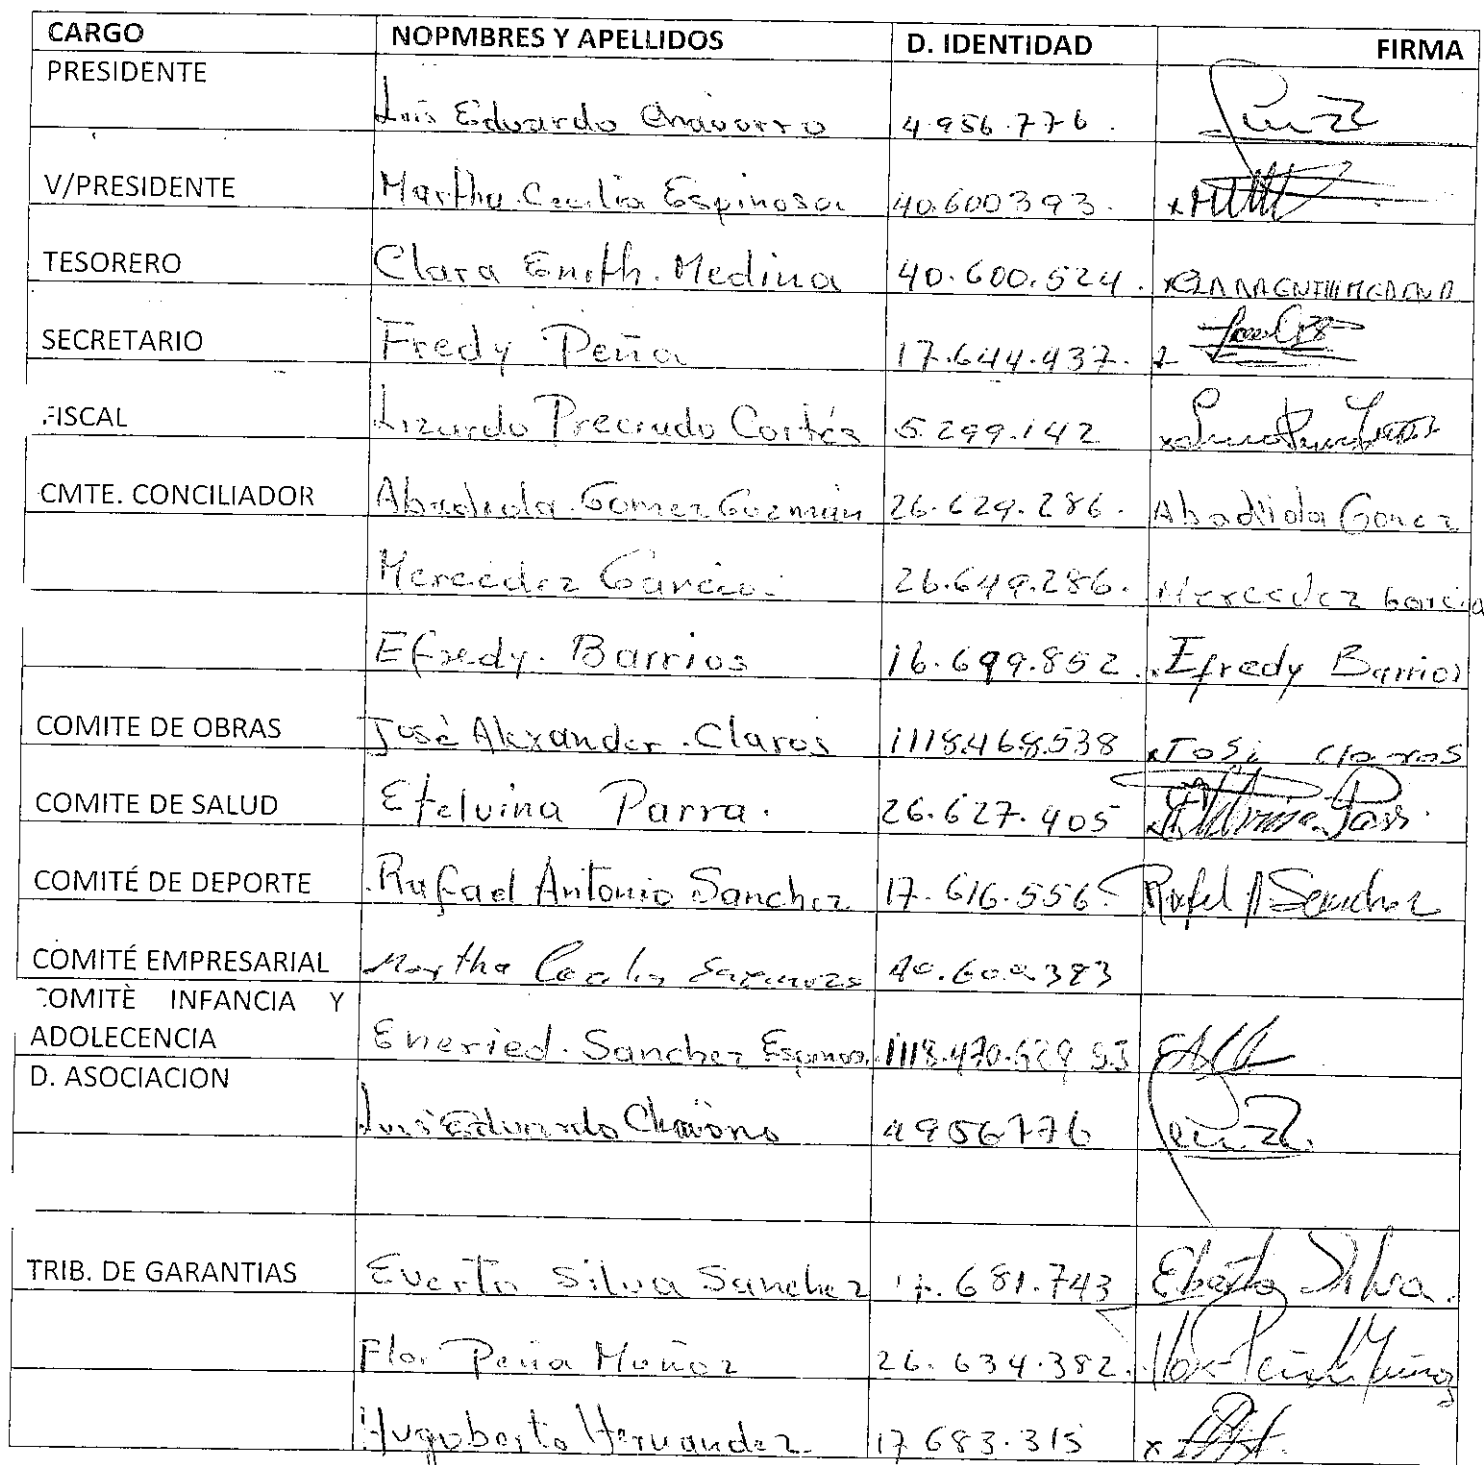 CARGO NOPMBRES Y APELLIDOS D. IDENTIDAD FIRMA
PRESIDENTE
Luis Eduardo Chavarro 4.956.776.
V/PRESIDENTE Martha Cecilia Espinosa 40.600393.
TESORERO Clara Enith. Medina 40.600.524.
SECRETARIO Fredy Peña 17.644.437.
FISCAL Lizardo Preciado Cortés 5.299.142
CMTE. CONCILIADOR Abadiola Gomez Guzmán 26.629.286. Abadiola Gomez
Mercedez Garcia. 26.649.286. Mercedez Garcia
Efredy. Barrios 16.699.852 Efredy Barrios
COMITE DE OBRAS José Alexander. Claros 1118.468.538 x José Claros
COMITE DE SALUD Etelvina Parra. 26.627.405
COMITÉ DE DEPORTE Rafael Antonio Sanchez 17.616.556 Rafel A Sanchez
COMITÉ EMPRESARIAL Martha Cecilia Espinosa 40.600393
COMITÈ INFANCIA Y
ADOLECENCIA Eneried. Sanchez Espinos. 1118.470.629
D. ASOCIACION
Luis Eduardo 4956776
TRIB. DE GARANTIAS Everto Silva Sanchez 17.681.743 Eberto Silva.
Flor Peña Muñoz 26.634.382. Flor Peña Muñoz
Hugoberto Hernandez 17683.315 x